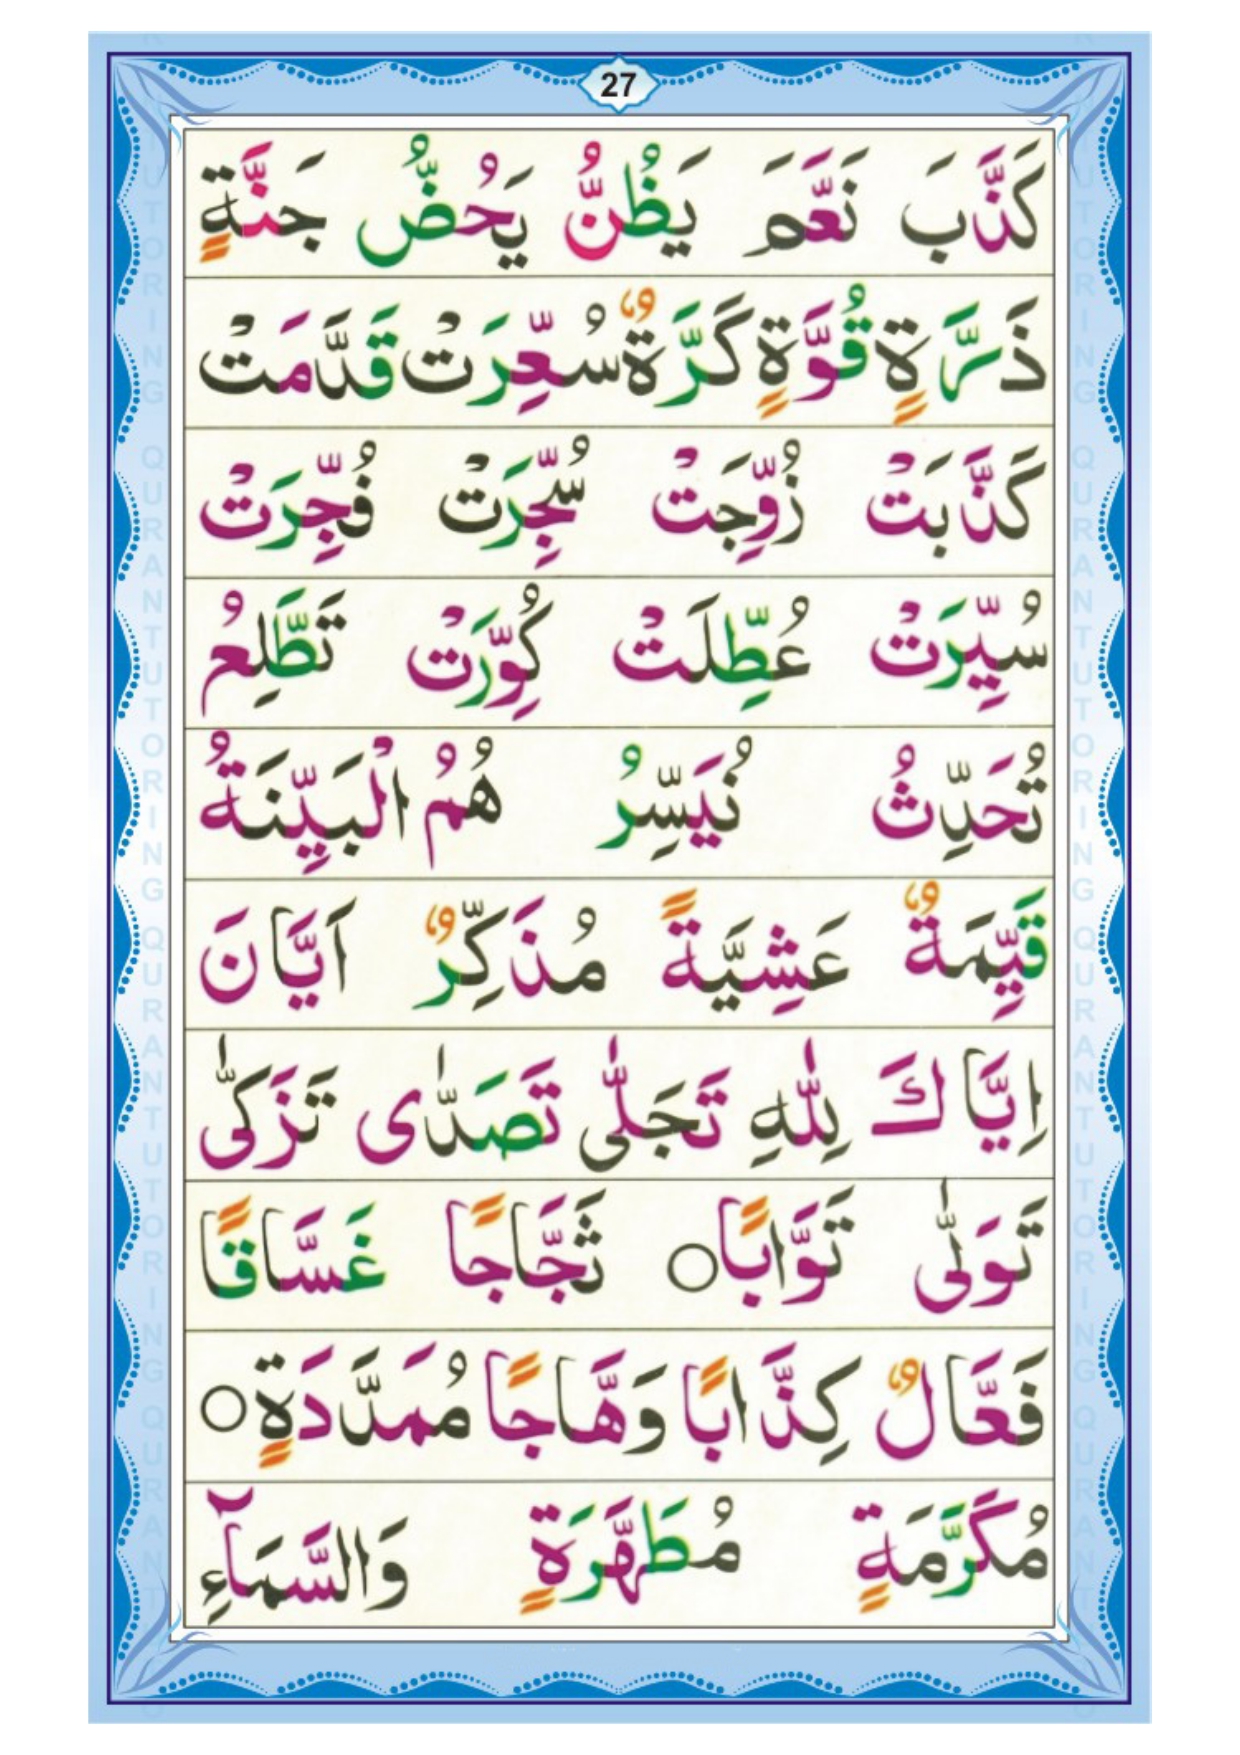 27
كَذَّبَ نَعَّمَ يَظُنُّ يَحُضُّ جَنَّةٍ
ذَرَّةٍ قُوَّةٍ كَرَّةٌ سُعِّرَتْ قَدَّمَتْ
كَذَّبَتْ زُوِّجَتْ سُجِّرَتْ فُجِّرَتْ
سُيِّرَتْ عُطِّلَتْ كُوِّرَتْ تَطَّلِعُ
تُحَدِّثُ نُيَسِّرُ هُمُ الْبَيِّنَةُ
قَيِّمَةٌ عَشِيَّةً مُذَكِّرٌ اَيَّانَ
اِيَّاكَ لِلّٰهِ تَجَلّٰى تَصَدّٰى تَزَكّٰى
تَوَلّٰى تَوَّابًا○ ثَجَّاجًا غَسَّاقًا
فَعَّالٌ كِذَّابًا وَهَّاجًا مُمَدَّدَةٍ○
مُكَرَّمَةٍ مُطَهَّرَةٍ وَالسَّمَآءِ
QURAN TUTORING QURAN TUTORING
QURAN TUTORING QURAN TUTORING